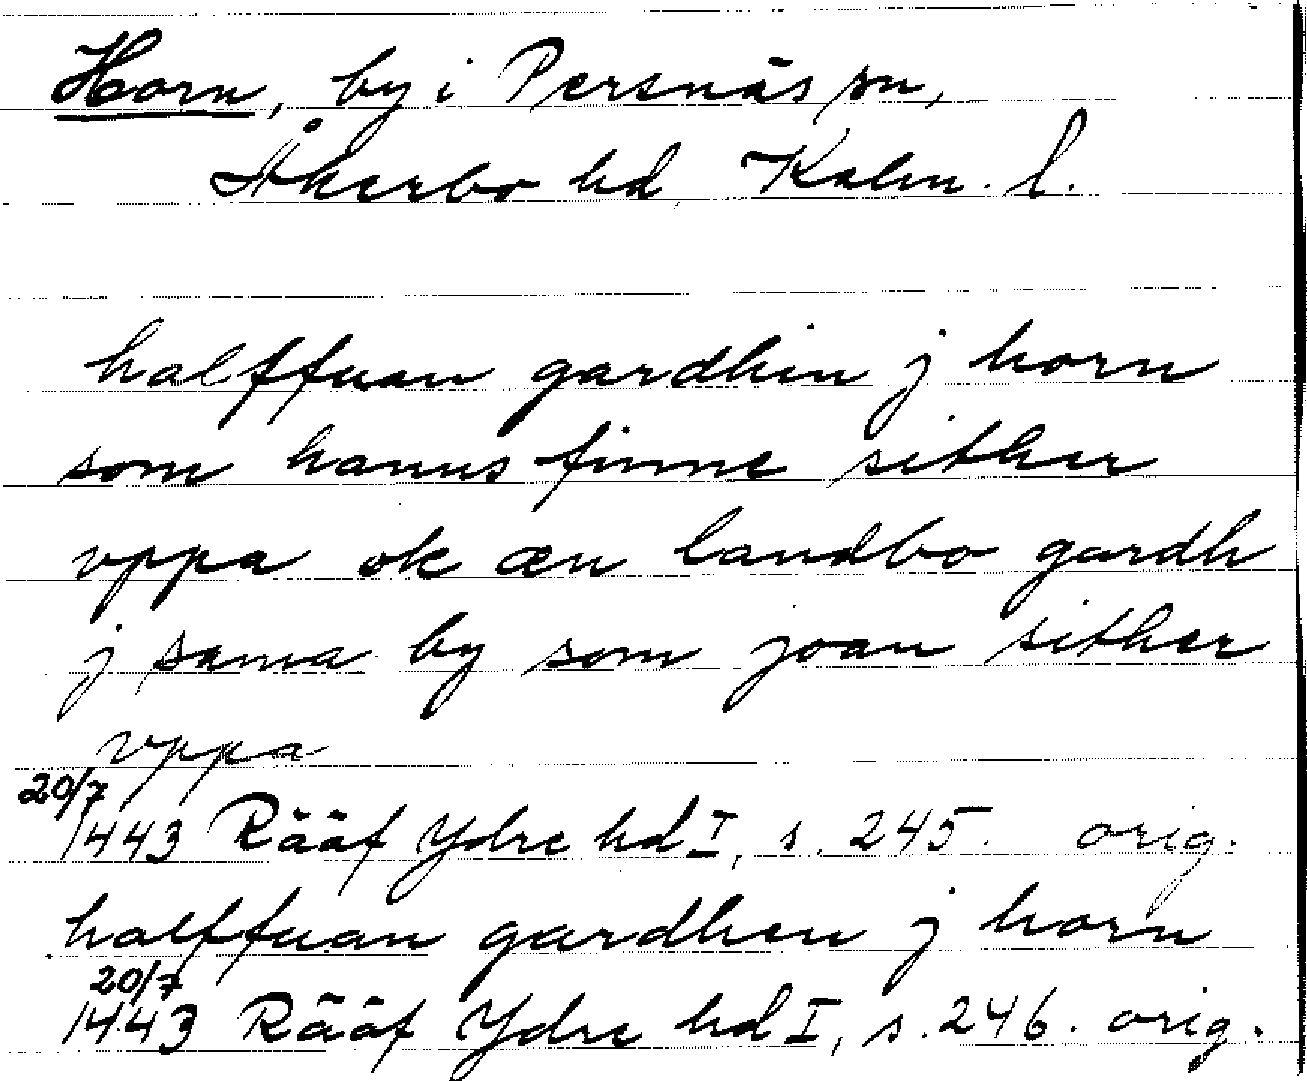 Horn, by i Persnäs sn,
Åkerbo hd Kalm. l.
halffuan gardhin j horn
som hannus finne sither
vppa ok æn landbo gardh
j sama by som joan sither
vppa
20/7
1443 Rääf Ydre hd I, s. 245. orig.
halffuan gardhen j horn
20/7
1443 Rääf Ydre hd I, s. 246. orig.